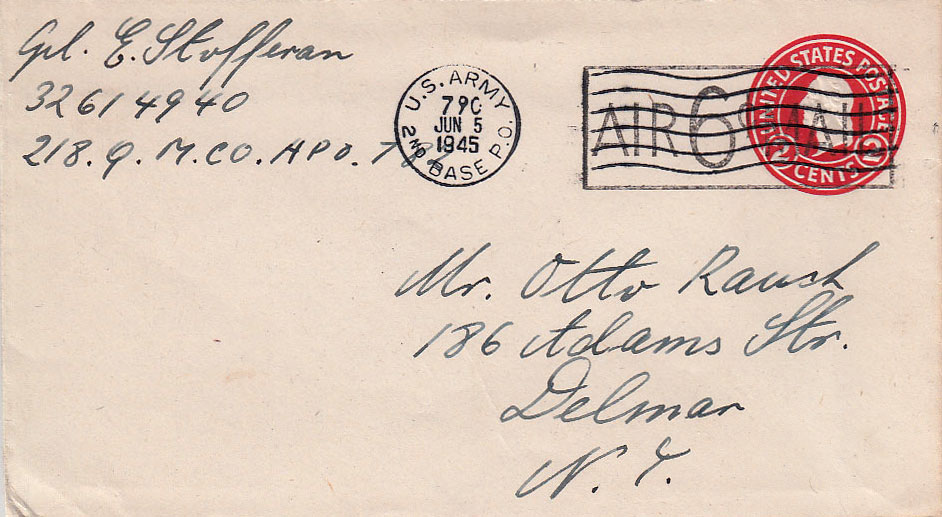 Cpl. E. Stofferan
32614940
218. Q. M. CO. APO.
U.S. ARMY
790
JUN 5
1945
2ND BASE P.O.
AIR 6¢ MAIL
UNITED STATES POSTAGE
2 CENTS 2
Mr. Otto Rauch
186 Adams Str.
Delmar
N. Y.